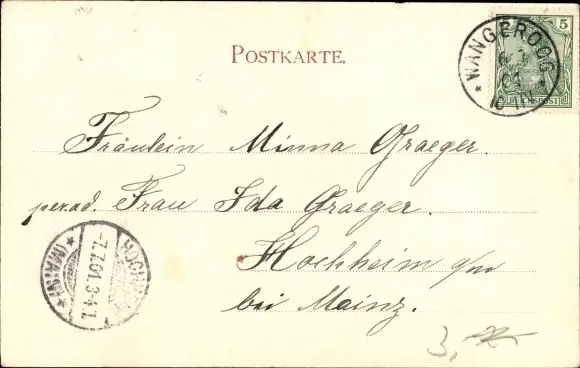 POSTKARTE.
5
WANGEROOG
01
REICHSPOST
Fräulein Minna Graeger.
per. ad. Frau Ida Graeger.
Hochheim a/m
bei Mainz.
(MAIN)
7.7.01.3-4.
3,